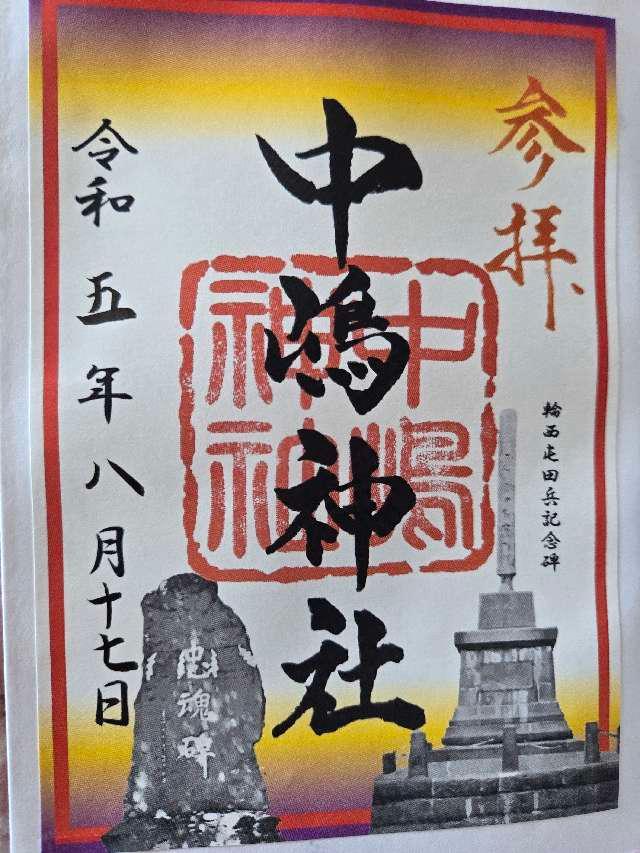 参拝
輪西屯田兵記念碑
中嶋神社
中嶋
神社
令和五年八月十七日
忠魂碑